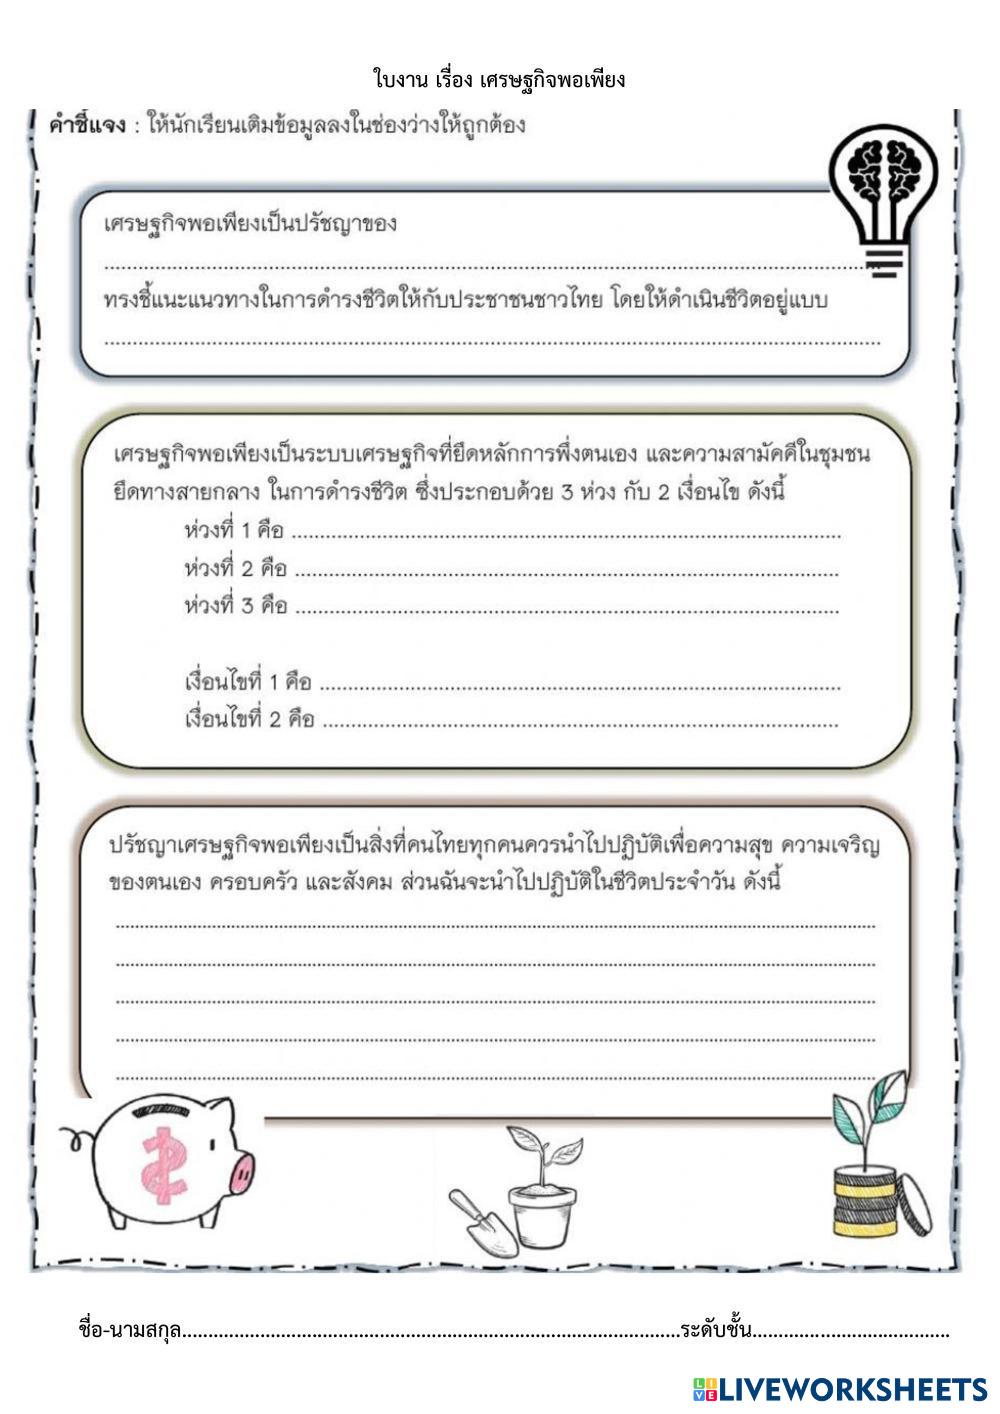 ใบงาน เรื่อง เศรษฐกิจพอเพียง
คำชี้แจง : ให้นักเรียนเติมข้อมูลลงในช่องว่างให้ถูกต้อง
เศรษฐกิจพอเพียงเป็นปรัชญาของ
................................................................
ทรงชี้แนะแนวทางในการดำรงชีวิตให้กับประชาชนชาวไทย โดยให้ดำเนินชีวิตอยู่แบบ
................................................................
เศรษฐกิจพอเพียงเป็นระบบเศรษฐกิจที่ยึดหลักการพึ่งตนเอง และความสามัคคีในชุมชน
ยึดทางสายกลาง ในการดำรงชีวิต ซึ่งประกอบด้วย 3 ห่วง กับ 2 เงื่อนไข ดังนี้
ห่วงที่ 1 คือ ................................................................
ห่วงที่ 2 คือ ................................................................
ห่วงที่ 3 คือ ................................................................
เงื่อนไขที่ 1 คือ ................................................................
เงื่อนไขที่ 2 คือ ................................................................
ปรัชญาเศรษฐกิจพอเพียงเป็นสิ่งที่คนไทยทุกคนควรนำไปปฏิบัติเพื่อความสุข ความเจริญ
ของตนเอง ครอบครัว และสังคม ส่วนฉันจะนำไปปฏิบัติในชีวิตประจำวัน ดังนี้
................................................................
................................................................
................................................................
................................................................
................................................................
ชื่อ-นามสกุล................................................................ระดับชั้น................................
LIVE LIVEWORKSHEETS